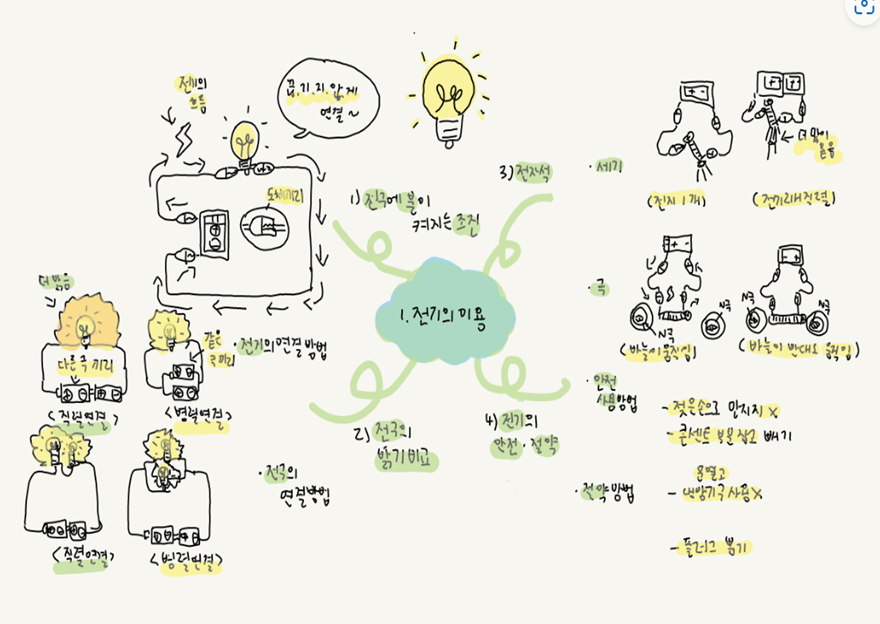 1. 전기의 이용
1) 전구에 불이
켜지는 조건
전기의
흐름
끊.기.지.않.게
연결~
도체끼리
2) 전구의
밝기 비교
· 전기의 연결방법
더 밝음
다른 극끼리
<직렬연결>
같은
극끼리
<병렬연결>
· 전구의
연결방법
<직렬연결>
<병렬연결>
3) 전자석
· 세기
(전지 1개)
더 많이
붙음
(전지 2개 직렬)
· 극
N극
N극
(바늘이 움직임)
N극
N극
(바늘이 반대로 움직임)
4) 전기의
안전·절약
· 안전
사용방법
- 젖은손으로 만지지 X
- 콘센트 부분 잡고 빼기
· 절약방법
문열고
- 냉방기구 사용X
- 플러그 뽑기